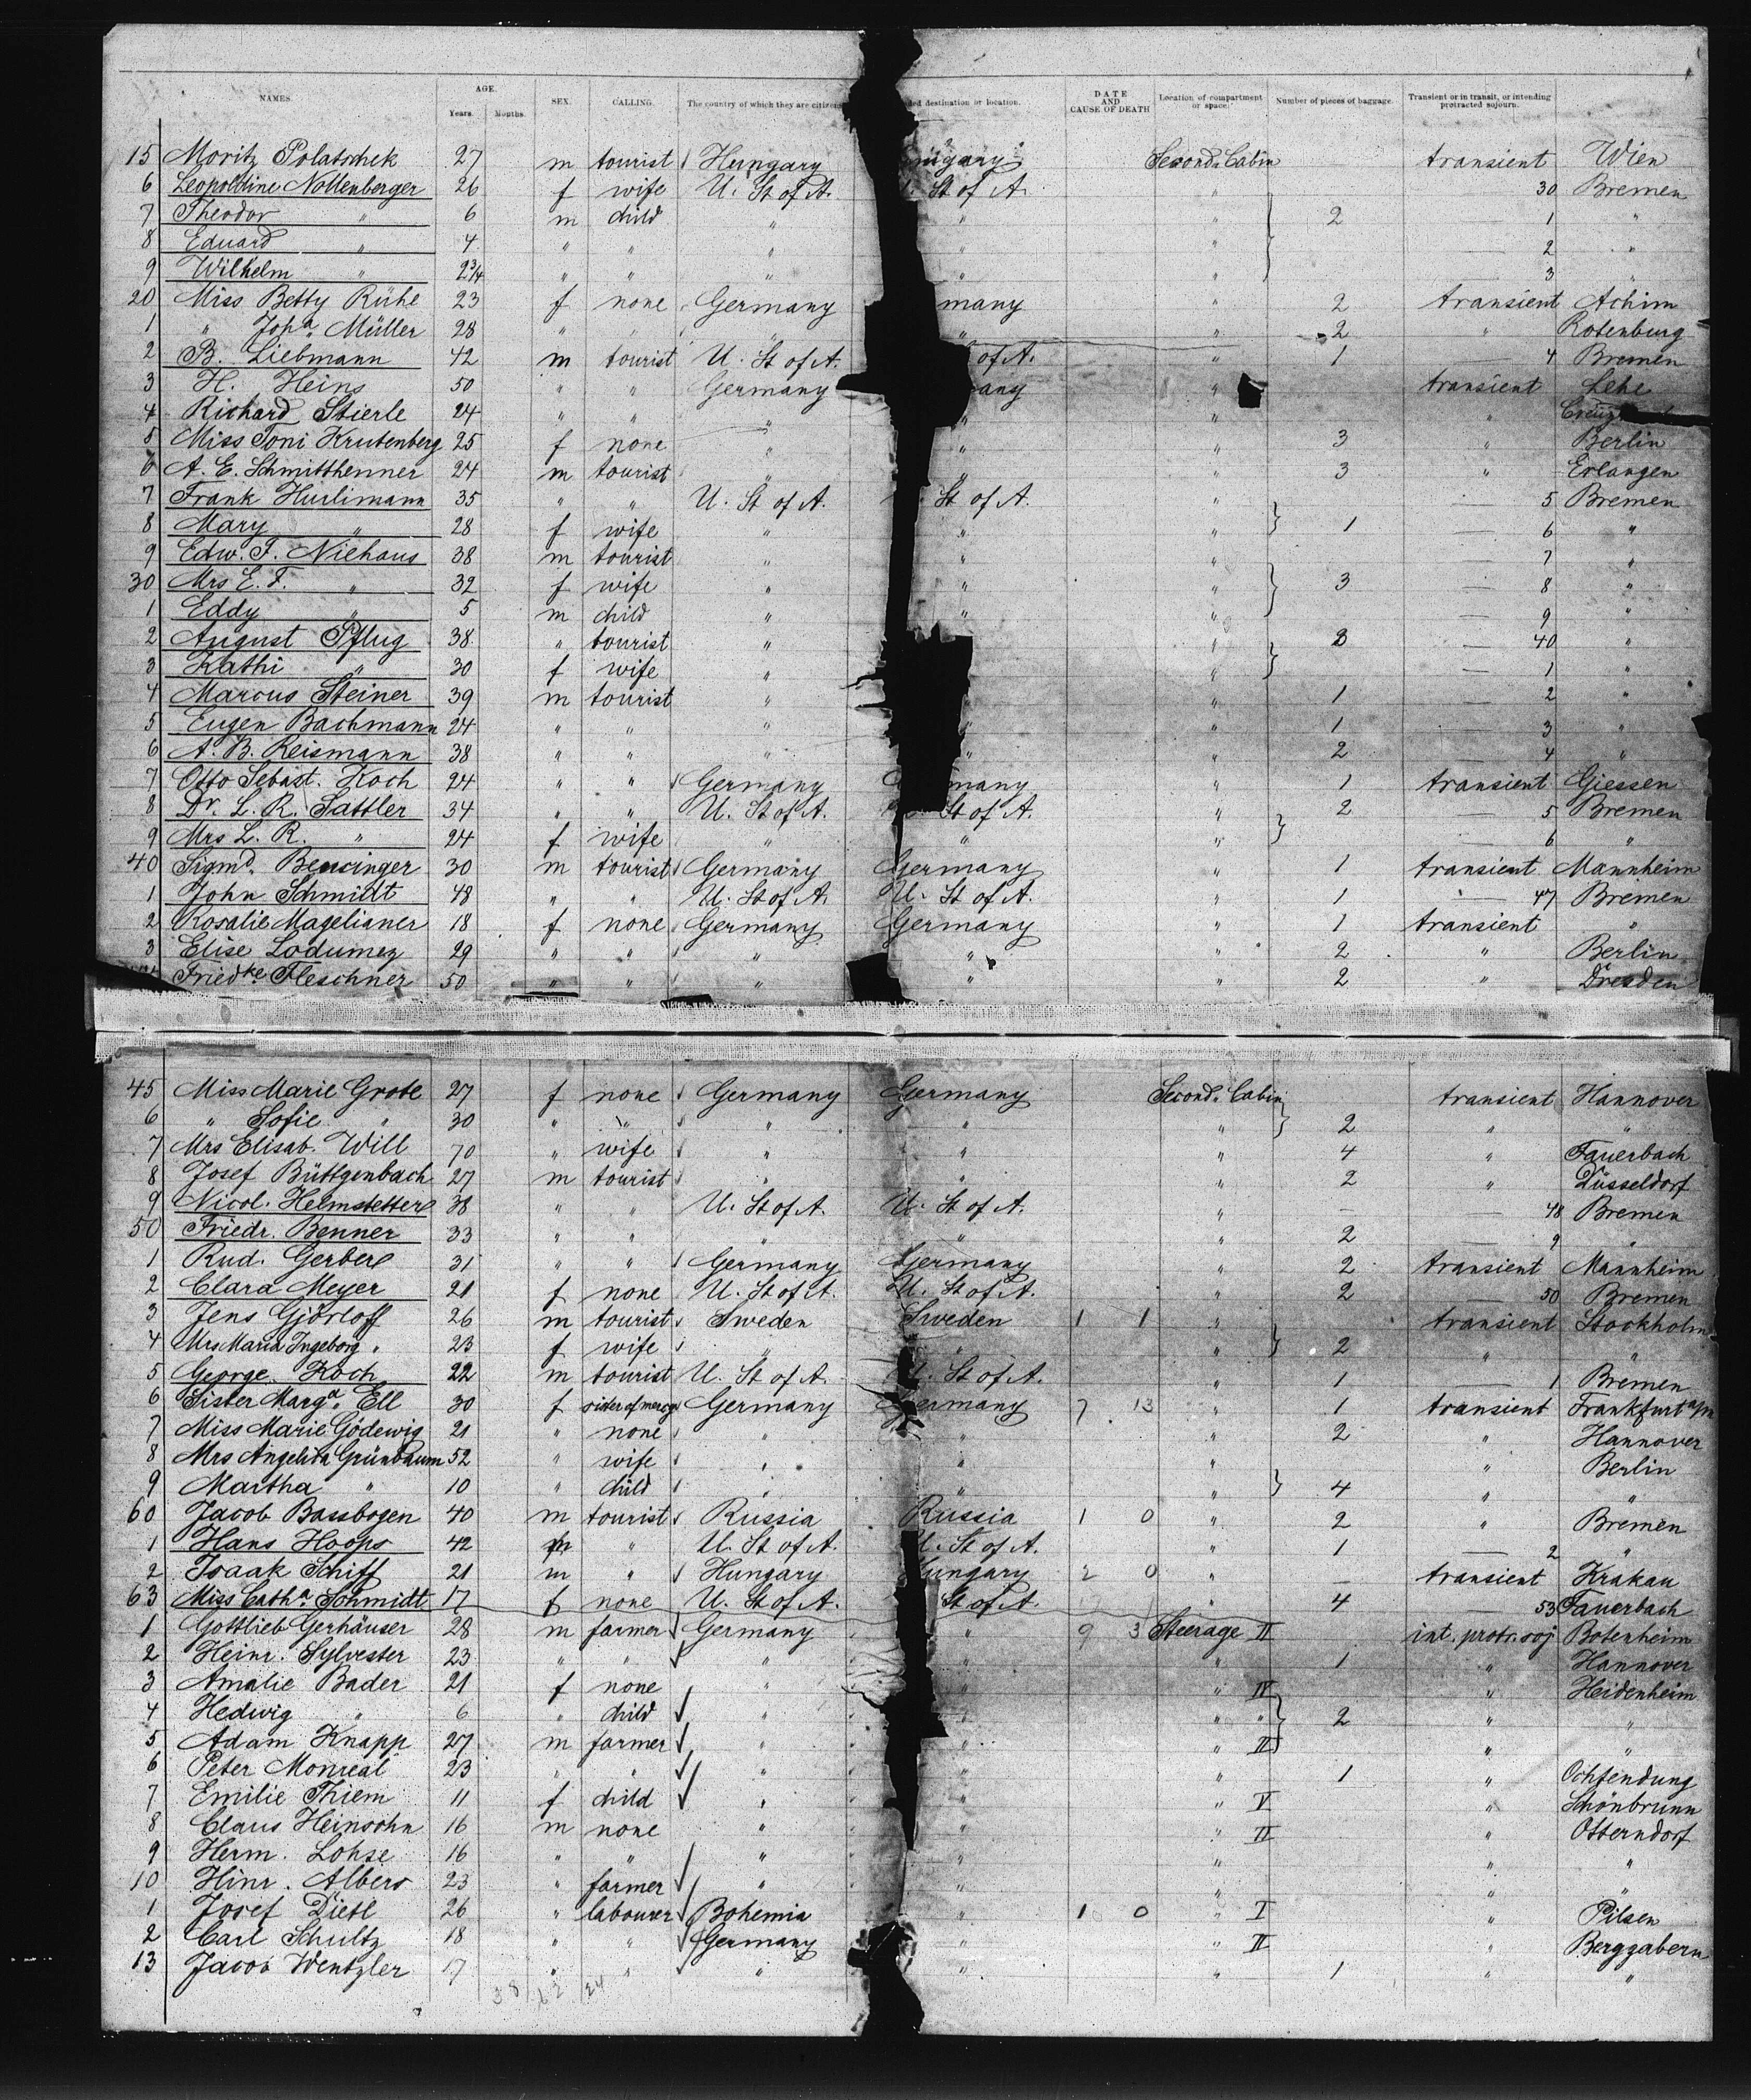 NAMES. AGE. Years. Months. SEX. CALLING. The country of which they are citizens ded destination or location. DATE AND CAUSE OF DEATH Location of compartment or space. Number of pieces of baggage. Transient or in transit, or intending protracted sojourn.
15 Moritz Polatschek 27 m tourist Hungary ungary Second Cabin transient Wien
6 Leopoldine Nollenberger 26 f wife U. St of A. St of A. " 30 Bremen
7 Theodor " 6 m child " " " 2 — 1 "
8 Eduard " 4 " " " " " — 2 "
9 Wilhelm " 2 3/4 " " " " " — 3 "
20 Miss Betty Rühe 23 f none Germany many " 2 transient Achim
1 " Joha. Müller 28 " " " " " 2 " Rotenburg
2 B. Liebmann 42 m tourist U. St of A. of A. " 1 — 4 Bremen
3 H. Heins 50 " " Germany any " transient Lehe
4 Richard Stierle 24 " " " " " "
5 Miss Toni Krutenberg 25 f none " " " 3 " Berlin
6 A. E. Schmitthenner 24 m tourist " " " 3 " Erlangen
7 Frank Hurlimann 35 " " U. St of A. St of A. " — 5 Bremen
8 Mary " 28 f wife " " " 1 — 6 "
9 Edw. F. Niehaus 38 m tourist " " " — 7 "
30 Mrs E. F. " 32 f wife " " " 3 — 8 "
1 Eddy " 5 m child " " " — 9 "
2 August Pflug 38 " tourist " " — 40 "
3 Kathi " 30 f wife " " — 1 "
4 Marcus Steiner 39 m tourist " " " 1 — 2 "
5 Eugen Bachmann 24 " " " " 1 — 3 "
6 A. B. Reismann 38 " " " " " 2 — 4 "
7 Otto Sebast. Koch 24 " " Germany many " 1 transient Giessen
8 Dr. L. R. Sattler 34 " " U. St of A. St of A. " 2 — 5 Bremen
9 Mrs L. R. " 24 f wife " " " — 6 "
40 Sigmd. Bensinger 30 m tourist Germany Germany " 1 transient Mannheim
1 John Schmidt 48 " " U. St of A. U. St of A. " 1 — 47 Bremen
2 Rosalie Magelianer 18 f none Germany Germany " 1 transient "
3 Elise Lodumez 29 " " " " " 2 " Berlin
Friedke. Fleschner 50 " " " " " 2 " Dresden
45 Miss Marie Grote 27 f none Germany Germany Second Cabin transient Hannover
6 " Sofie " 30 " " " " " 2 " "
7 Mrs Elisab. Will 70 " wife " " " 4 " Fauerbach
8 Josef Büttgenbach 27 m tourist " " " 2 " Düsseldorf
9 Nicol. Helmstetter 38 " " U. St of A. U. St of A. " — — 48 Bremen
50 Friedr. Benner 33 " " " " " 2 — 9 "
1 Rud. Gerber 31 " " Germany Germany " 2 transient Mannheim
2 Clara Meyer 21 f none U. St of A. U. St of A. " 2 — 50 Bremen
3 Jens Gjörloff 26 m tourist Sweden Sweden 1 1 " transient Stockholm
4 Mrs Maria Ingeborg " 23 f wife " " " 2 " "
5 George Koch 22 m tourist U. St of A. U. St of A. " 1 — 1 Bremen
6 Sister Marga. Ell 30 f sister of mercy Germany Germany 7 13 " 1 transient Frankfurt a/m
7 Miss Marie Gödewig 21 " none " " " 2 " Hannover
8 Mrs Angelika Grünbaum 52 " wife " " " " Berlin
9 Martha " 10 " child " " " 4 " "
60 Jacob Bassbogen 40 m tourist Russia Russia 1 0 " 2 " Bremen
1 Hans Hoops 42 m " U. St of A. U. St of A. " 1 — 2 "
2 Isaak Schiff 21 m " Hungary Hungary 2 0 " — transient Krakau
63 Miss Catha. Schmidt 17 f none U. St of A. St of A. " 4 — 53 Fauerbach
1 Gottlieb Gerhäuser 28 m farmer Germany " 9 3 Steerage II int. protr. soj Botenheim
2 Heinr. Sylvester 23 " " " " " 1 " Hannover
3 Amalie Bader 21 f none " " " IV " Heidenheim
4 Hedwig " 6 " child " " " " 2 " "
5 Adam Knapp 27 m farmer " " " II " "
6 Peter Monreal 23 " " " " " 1 " Ochtendung
7 Emilie Thiem 11 f child " " " V " Schönbrunn
8 Claus Heinsohn 16 m none " " " II " Otterndorf
9 Herm. Lohse 16 " " " " " " "
10 Hinr. Albers 23 " farmer " " " " "
1 Josef Dietl 26 " labourer Bohemia " 1 0 " I " Pilsen
2 Carl Schultz 18 " " Germany " " II " Bergzabern
13 Jacob Wentzler 17 " " " " " 1 " "
38 62 24